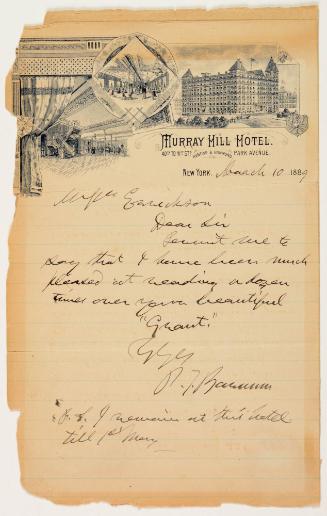 MURRAY HILL HOTEL.
40TH TO 41ST STS PARK AVENUE.
NEW YORK, March 10 1889
Dear Sir
Permit me to
say that I have been much
pleased at reading a dozen
times over your beautiful
"Grant."
P. T. Barnum
P.S. I remain at this hotel
till 1st May